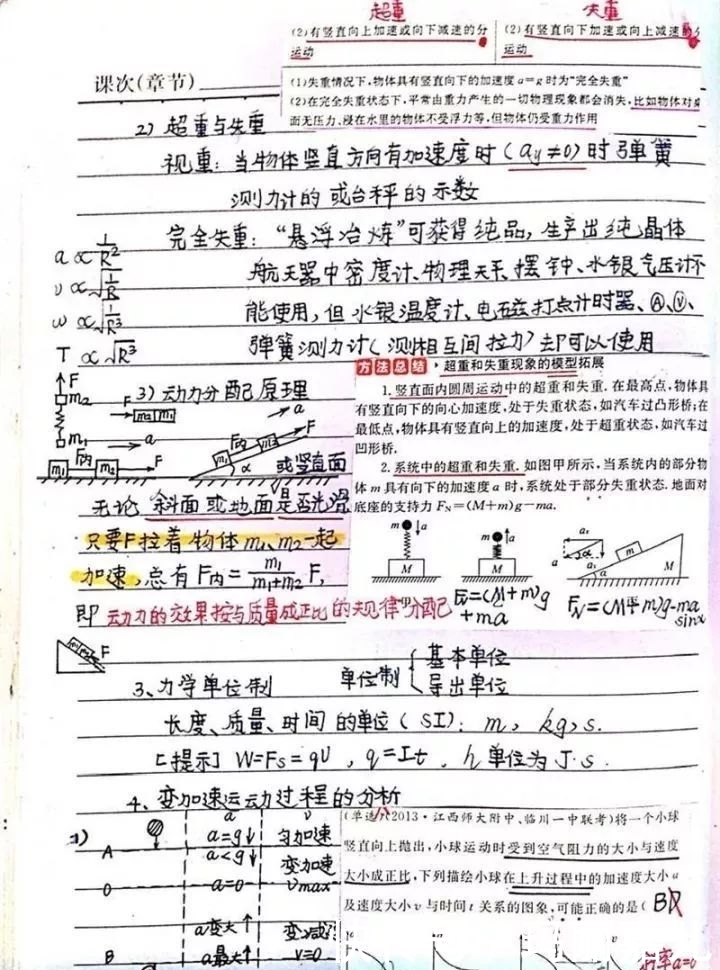 超重
失重
(2)有竖直向上加速或向下减速的分
运动
(2)有竖直向下加速或向上减速的分
运动
课次(章节)
(1)失重情况下,物体具有竖直向下的加速度a=g时为“完全失重”
(2)在完全失重状态下,平常由重力产生的一切物理现象都会消失,比如物体对桌
面无压力、浸在水里的物体不受浮力等,但物体仍受重力作用
2) 超重与失重
视重: 当物体竖直方向有加速度时(ay≠0)时弹簧
测力计的或台秤的示数
完全失重: “悬浮冶炼”可获得纯品, 生产出纯晶体
航天器中密度计、物理天平、摆钟、水银气压计不
能使用, 但水银温度计、电磁打点计时器、Ⓐ、Ⓥ、
弹簧测力计(测相互间拉力)却可以使用
a∝1/R²
v∝√(1/R)
ω∝√(1/R³)
T∝√R³
3) 动力分配原理
F
m₂
m₁
F
m₂ m₁
a
m₁ F内 m₂ F
a
m₁ F内 m₂ F
α
或竖直面
无论斜面或地面是否光滑
只要F拉着物体m₁、m₂一起
加速, 总有F内=m₁/(m₁+m₂)F,
即 动力的效果按与质量成正比的规律分配
方法总结 超重和失重现象的模型拓展
1.竖直面内圆周运动中的超重和失重.在最高点,物体具
有竖直向下的向心加速度,处于失重状态,如汽车过凸形桥;在
最低点,物体具有竖直向上的加速度,处于超重状态,如汽车过
凹形桥.
2.系统中的超重和失重.如图甲所示,当系统内的部分物
体m具有向下的加速度a时,系统处于部分失重状态.地面对
底座的支持力FN=(M+m)g-ma.
m a
M
m a
M
a m M
a₁
α
FN=(M+m)g
+ma
FN=(M+m)g-ma
sinα
F
3、力学单位制
单位制{基本单位
导出单位
长度、质量、时间的单位(SI): m, kg, s.
[提示] W=Fs=qU, q=It, h单位为J·s.
4、变加速运动过程的分析
a
v
A
a=g↓
匀加速
a<g↓
变加速
O
a=0
vmax
a变大↑
B
a最大↑
v=0
(单选)(2013·江西师大附中、临川一中联考)将一个小球
竖直向上抛出,小球运动时受到空气阻力的大小与速度
大小成正比,下列描绘小球在上升过程中的加速度大小a
及速度大小v与时间t关系的图象,可能正确的是(